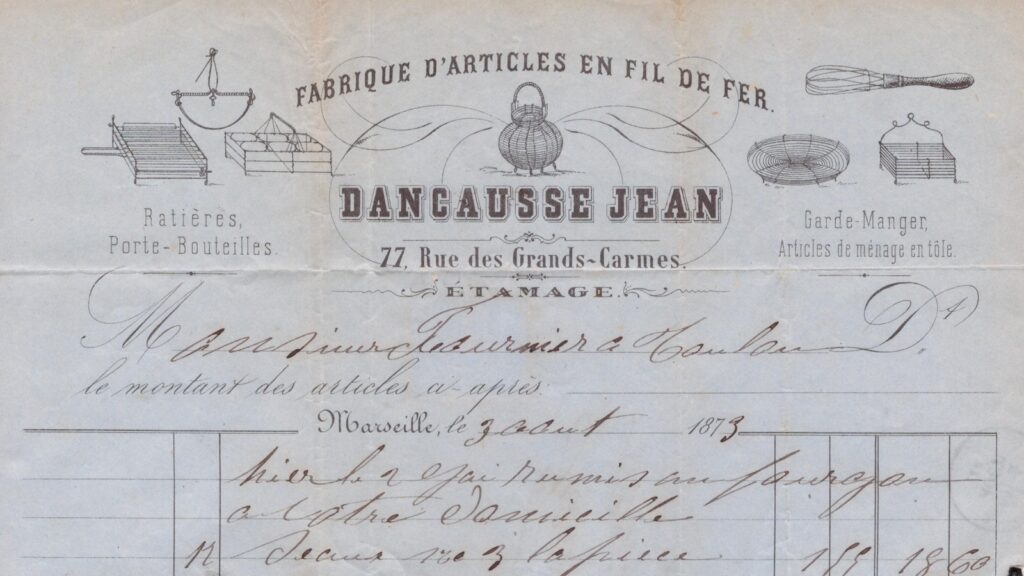 FABRIQUE D'ARTICLES EN FIL DE FER.
DANCAUSSE JEAN
77, Rue des Grands-Carmes.
ÉTAMAGE.
Ratières,
Porte-Bouteilles.
Garde-Manger,
Articles de ménage en tôle.
Monsieur Fournier a Toulon Dt
le montant des articles ci-après
Marseille, le 3 aout 1873
hier le 2 jai remis au fourgon
a votre domicille
12 Seaux no 3 la piece 1 55 18 60